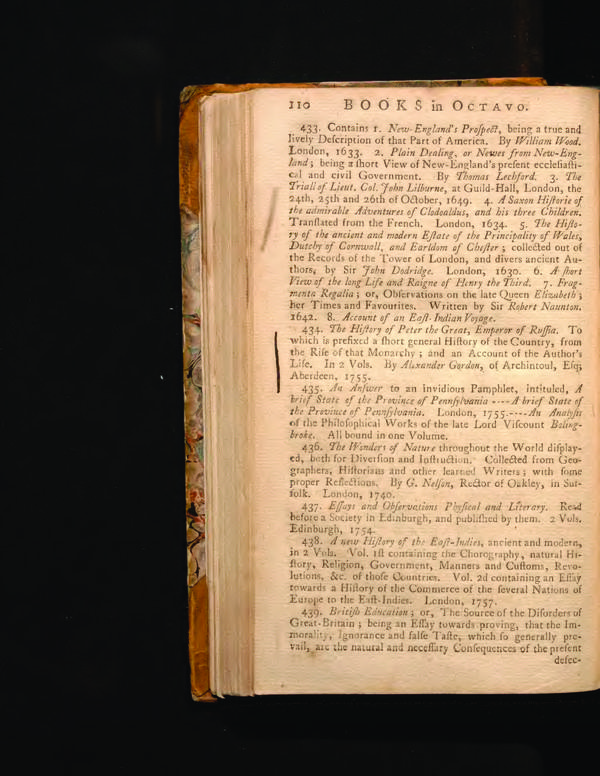 110 BOOKS in OCTAVO.
433. Contains 1. New-England's Proſpect, being a true and
lively Deſcription of that Part of America. By William Wood.
London, 1633. 2. Plain Dealing, or Newes from New-Eng-
land; being a ſhort View of New-England's preſent eccleſiaſti-
cal and civil Government. By Thomas Lechford. 3. The
Triall of Lieut. Col. John Lilburne, at Guild-Hall, London, the
24th, 25th and 26th of October, 1649. 4. A Saxon Hiſtorie of
the admirable Adventures of Clodoaldus, and his three Children.
Tranſlated from the French. London, 1634. 5. The Hiſto-
ry of the ancient and modern Eſtate of the Principality of Wales,
Dutchy of Cornwall, and Earldom of Cheſter; collected out of
the Records of the Tower of London, and divers ancient Au-
thors, by Sir John Dodridge. London, 1630. 6. A ſhort
View of the long Life and Raigne of Henry the Third. 7. Frag-
menta Regalia; or, Obſervations on the late Queen Elizabeth;
her Times and Favourites. Written by Sir Robert Naunton.
1642. 8. Account of an Eaſt-Indian Voyage.
434. The Hiſtory of Peter the Great, Emperor of Ruſſia. To
which is prefixed a ſhort general Hiſtory of the Country, from
the Riſe of that Monarchy; and an Account of the Author's
Life. In 2 Vols. By Alexander Gordon, of Archintoul, Eſq;
Aberdeen, 1755.
435. An Anſwer to an invidious Pamphlet, intituled, A
brief State of the Province of Pennſylvania ---- A brief State of
the Province of Pennſylvania. London, 1755.----An Analyſis
of the Philoſophical Works of the late Lord Viſcount Boling-
broke. All bound in one Volume.
436. The Wonders of Nature throughout the World diſplay-
ed, both for Diverſion and Inſtruction. Collected from Geo-
graphers, Hiſtorians and other learned Writers; with ſome
proper Reflections. By G. Nelſon, Rector of Oakley, in Suf-
folk. London, 1740.
437. Eſſays and Obſervations Phyſical and Literary. Read
before a Society in Edinburgh, and publiſhed by them. 2 Vols.
Edinburgh, 1754.
438. A new Hiſtory of the Eaſt-Indies, ancient and modern,
in 2 Vols. Vol. 1ſt containing the Chorography, natural Hi-
ſtory, Religion, Government, Manners and Cuſtoms, Revo-
lutions, &c. of thoſe Countries. Vol. 2d containing an Eſſay
towards a Hiſtory of the Commerce of the ſeveral Nations of
Europe to the Eaſt-Indies. London, 1757.
439. Britiſh Education; or, The Source of the Diſorders of
Great-Britain; being an Eſſay towards proving, that the Im-
morality, Ignorance and falſe Taſte, which ſo generally pre-
vail, are the natural and neceſſary Conſequences of the preſent
defec-